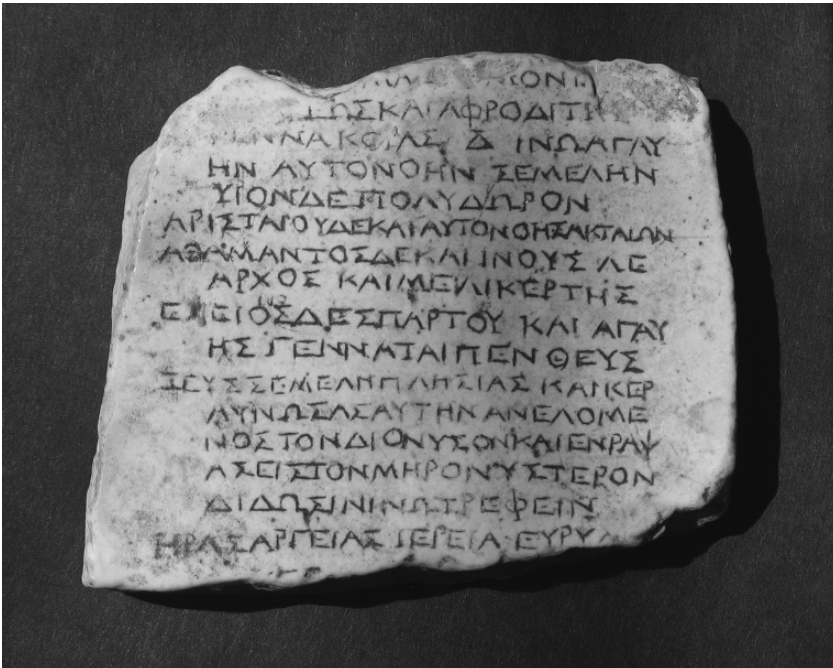 ΣΚΑΙΑΦΡΟΔΙΤΗ
Δ ΙΝΩΑΓΑΥ
ΗΝ ΑΥΤΟΝΟΗΝ ΣΕΜΕΛΗΝ
ΥΙΟΝΔΕΠΟΛΥΔΩΡΟΝ
ΑΡΙΣΤΑΙΟΥΔΕΚΑΙΑΥΤΟΝΟΗΣΑΚΤΑΙΩΝ
ΑΘΑΜΑΝΤΟΣΔΕΚΑΙΙΝΟΥΣ ΛΕ
ΑΡΧΟΣ ΚΑΙΜΕΛΙΚΕΡΤΗΣ
ΕΧΕΙΟΣΔΕΣΠΑΡΤΟΥ ΚΑΙ ΑΓΑΥ
ΗΣ ΓΕΝΝΑΤΑΙΠΕΝΘΕΥΣ
ΖΕΥΣΣΕΜΕΛΗΠΛΗΣΙΑΣ ΚΑΙΚΕΡ
ΑΥΝΩΣΑΣΑΥΤΗΝΑΝΕΛΟΜΕ
ΝΟΣΤΟΝΔΙΟΝΥΣΟΝΚΑΙΕΝΡΑΨ
ΑΣΕΙΣΤΟΝΜΗΡΟΝΥΣΤΕΡΟΝ
ΔΙΔΩΣΙΝΙΝΩΤΡΕΦΕΙΝ
ΗΡΑΣΑΡΓΕΙΑΣ ΙΕΡΕΙΑ ΕΥΡΥ